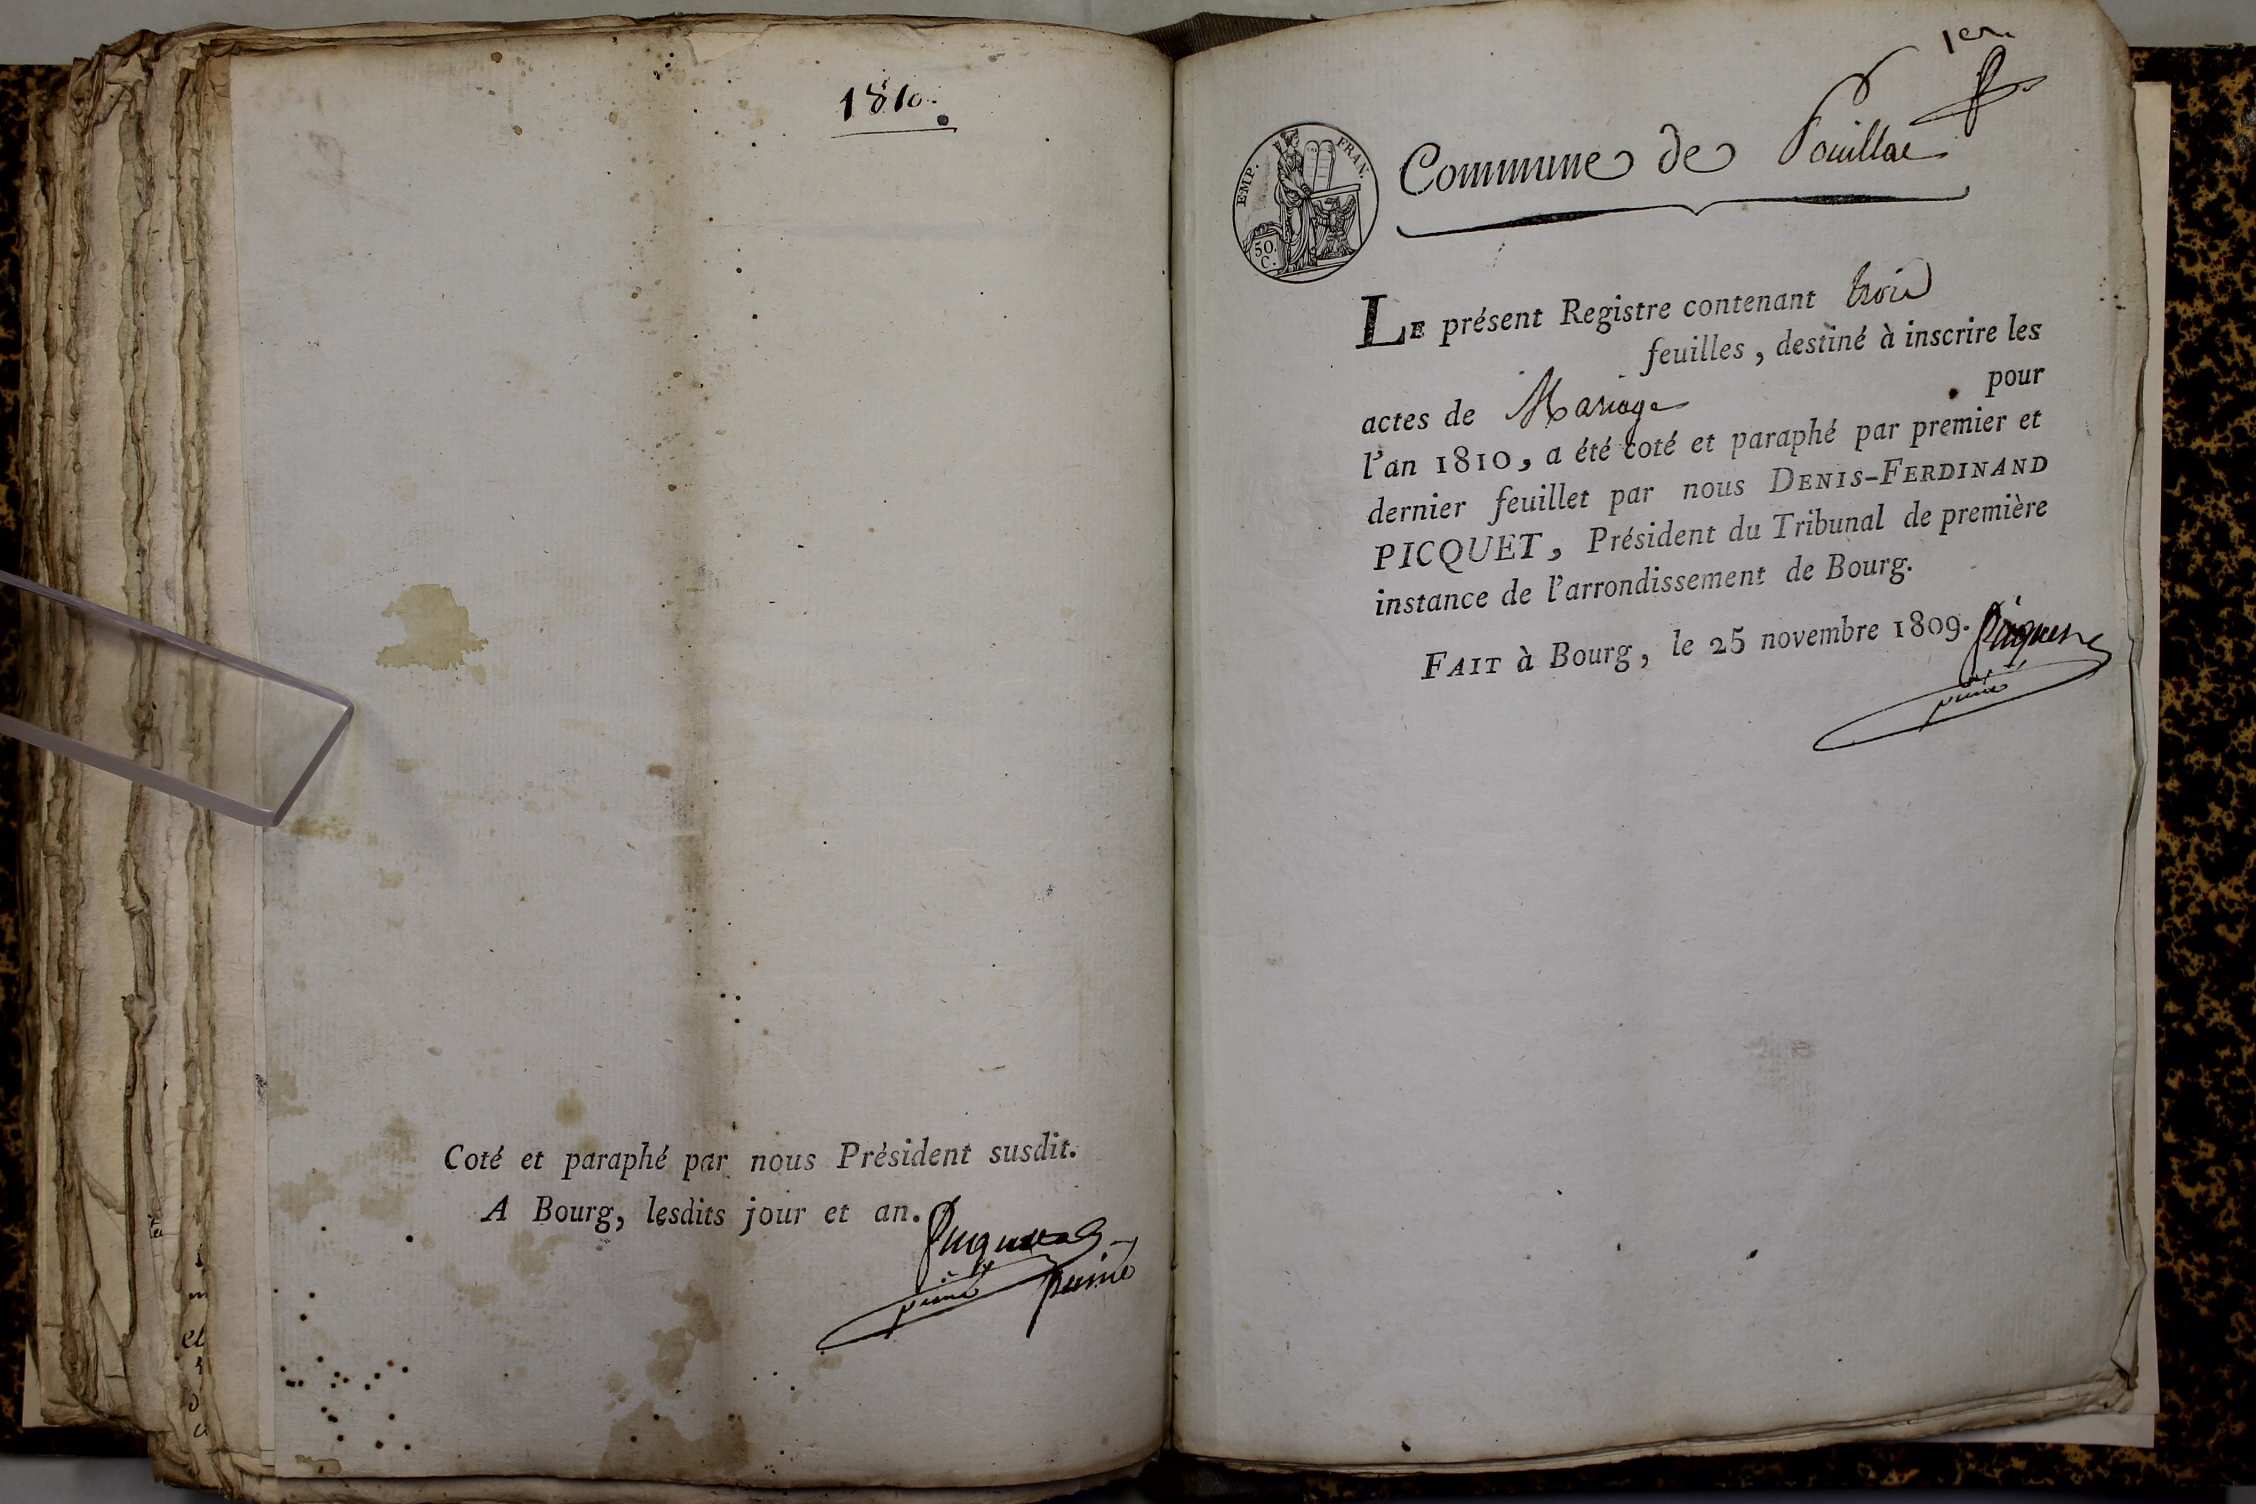 1810.
Coté et paraphé par nous Président susdit.
A Bourg, lesdits jour et an.
Picquet
puiné
puiné
1er.
EMP. FRAN.
50.
C.
Commune de Pouillac
LE présent Registre contenant trois
feuilles, destiné à inscrire les
actes de Mariage pour
l'an 1810, a été coté et paraphé par premier et
dernier feuillet par nous DENIS-FERDINAND
PICQUET, Président du Tribunal de première
instance de l'arrondissement de Bourg.
FAIT à Bourg, le 25 novembre 1809. Picquet
puiné